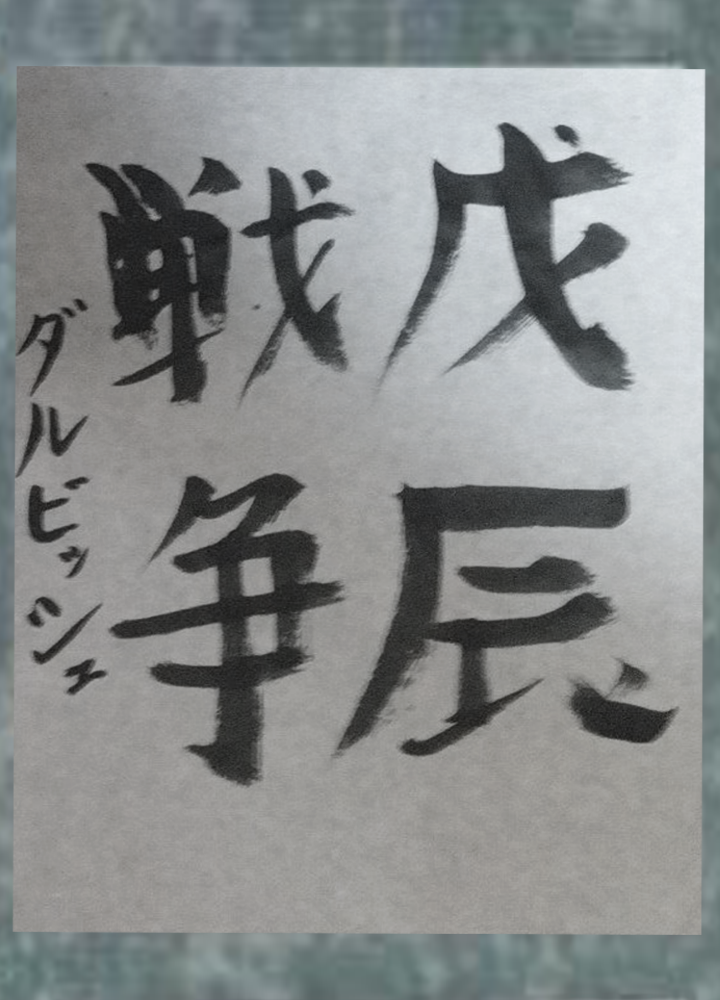 戊辰
戦争
ダルビッシェ